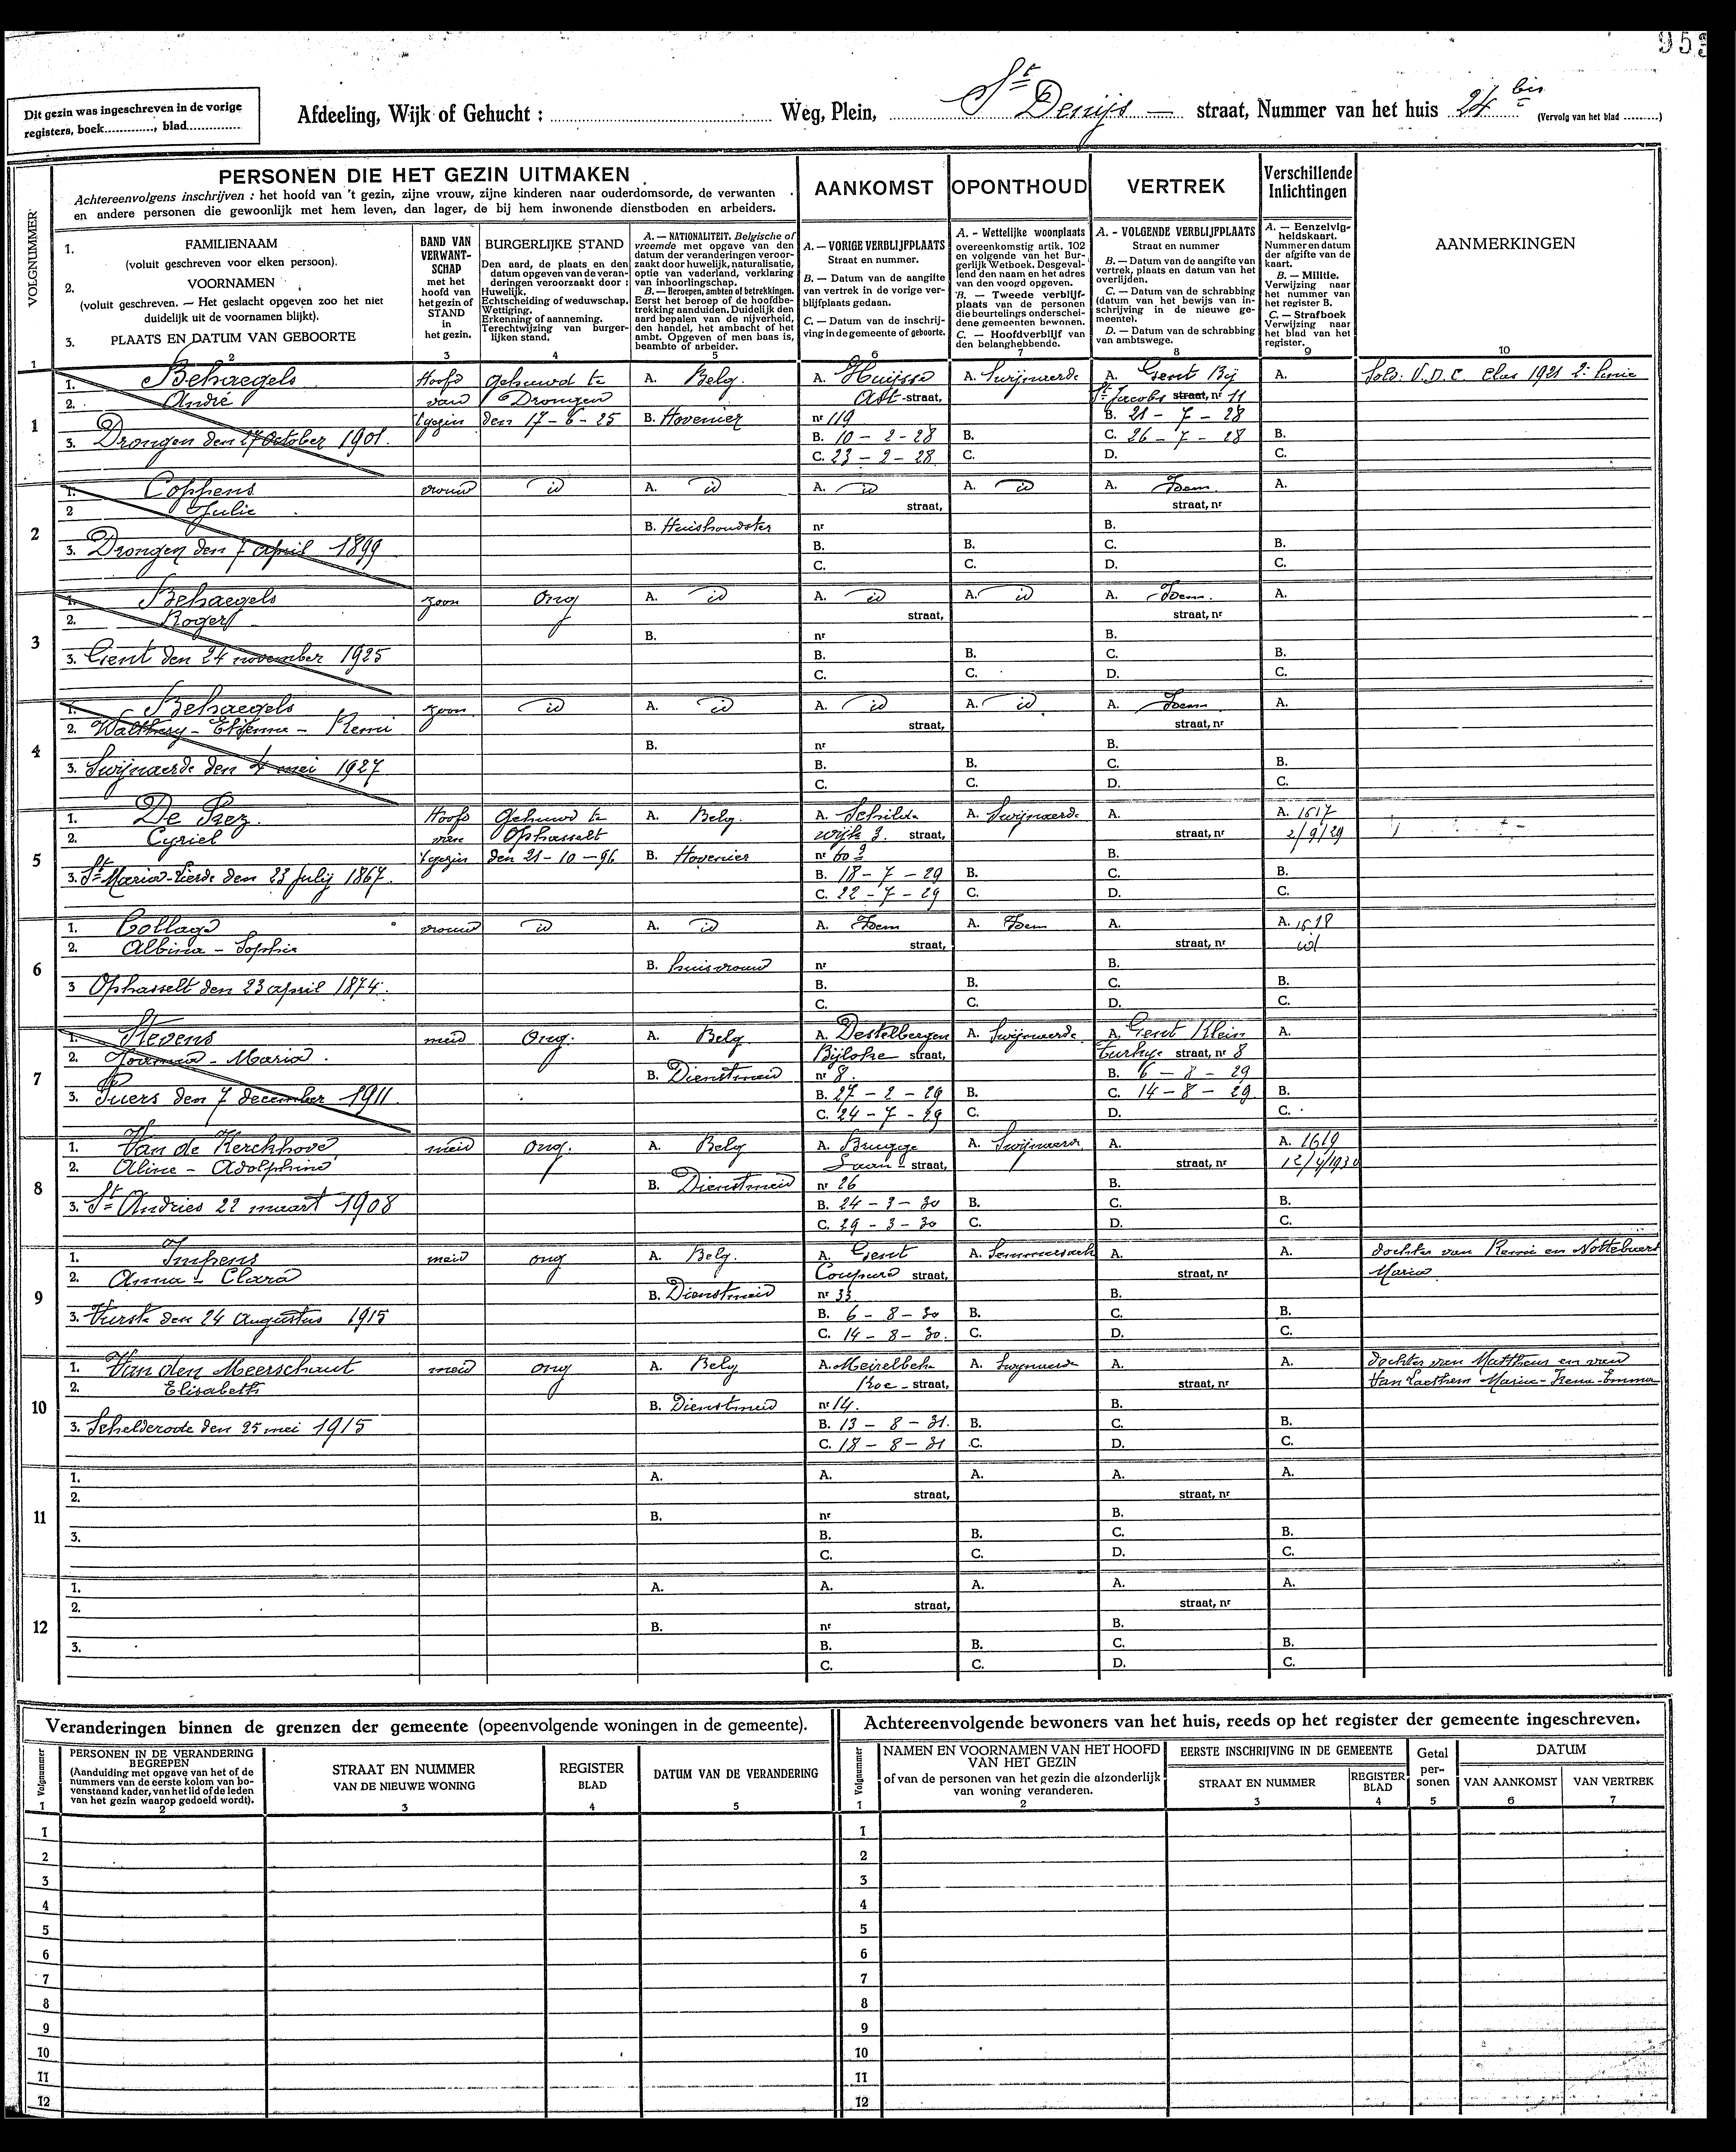 953
Dit gezin was ingeschreven in de vorige
registers, boek............, blad..............
Afdeeling, Wijk of Gehucht : .......... Weg, Plein, St Denijs — straat, Nummer van het huis 24 bis (Vervolg van het blad ..........)
PERSONEN DIE HET GEZIN UITMAKEN
Achtereenvolgens inschrijven : het hoofd van 't gezin, zijne vrouw, zijne kinderen naar ouderdomsorde, de verwanten
en andere personen die gewoonlijk met hem leven, dan lager, de bij hem inwonende dienstboden en arbeiders.
AANKOMST
OPONTHOUD
VERTREK
Verschillende
Inlichtingen
VOLGNUMMER
1. FAMILIENAAM
(voluit geschreven voor elken persoon).
2. VOORNAMEN
(voluit geschreven. — Het geslacht opgeven zoo het niet
duidelijk uit de voornamen blijkt).
3. PLAATS EN DATUM VAN GEBOORTE
BAND VAN
VERWANT-
SCHAP
met het
hoofd van
het gezin of
STAND
in
het gezin.
BURGERLIJKE STAND
Den aard, de plaats en den
datum opgeven van de veran-
deringen veroorzaakt door :
Huwelijk.
Echtscheiding of weduwschap.
Wettiging.
Erkenning of aanneming.
Terechtwijzing van burger-
lijken stand.
A. — NATIONALITEIT. Belgische of
vreemde met opgave van den
datum der veranderingen veroor-
zaakt door huwelijk, naturalisatie,
optie van vaderland, verklaring
van inboorlingschap.
B. — Beroepen, ambten of betrekkingen.
Eerst het beroep of de hoofdbe-
trekking aanduiden. Duidelijk den
aard bepalen van de nijverheid,
den handel, het ambacht of het
ambt. Opgeven of men baas is,
beambte of arbeider.
A. — VORIGE VERBLIJFPLAATS
Straat en nummer.
B. — Datum van de aangifte
van vertrek in de vorige ver-
blijfplaats gedaan.
C. — Datum van de inschrij-
ving in de gemeente of geboorte.
A. - Wettelijke woonplaats
overeenkomstig artik. 102
en volgende van het Bur-
gerlijk Wetboek. Desgeval-
lend den naam en het adres
van den voogd opgeven.
B. — Tweede verblijf-
plaats van de personen
die beurtelings onderschei-
dene gemeenten bewonen.
C. — Hoofdverblijf van
den belanghebbende.
A. - VOLGENDE VERBLIJFPLAATS
Straat en nummer
B. — Datum van de aangifte van
vertrek, plaats en datum van het
overlijden.
C. — Datum van de schrabbing
(datum van het bewijs van in-
schrijving in de nieuwe ge-
meente).
D. — Datum van de schrabbing
van ambtswege.
A. — Eenzelvig-
heidskaart.
Nummer en datum
der afgifte van de
kaart.
B. — Militie.
Verwijzing naar
het nummer van
het register B.
C. — Strafboek
Verwijzing naar
het blad van het
register.
AANMERKINGEN
1 2 3 4 5 6 7 8 9 10
1
1. Behaegels Hoofd Gehuwd te A. Belg. A. Huijsse A. Swijnaerde A. Gent Bij A. Sold. V.D.C. Clas 1921
2. André van Drongen straat, St Jacobs straat, nr 11
't gezin den 17-6-25 B. Hovenier nr 119 B. 21-7-28
3. Drongen den 27 October 1901. B. 10-2-28 B. C. 26-7-28 B.
C. 23-2-28 C. D. C.
2
1. Coppens vrouw id A. id A. id A. id A. Idem A.
2 Julie straat, straat, nr
B. Huishoudster nr B.
3. Drongen den 7 april 1899 B. B. C. B.
C. C. D. C.
3
1. Behaegels zoon Ong A. id A. id A. id A. Idem. A.
2. Roger straat, straat, nr
B. nr B.
3. Gent den 24 november 1925 B. B. C. B.
C. C. D. C.
4
1. Behaegels zoon id A. id A. id A. id A. Idem A.
2. Walthery - Etienne - Remi straat, straat, nr
B. nr B.
3. Swijnaerde den 4 mei 1927 B. B. C. B.
C. C. D. C.
5
1. De Prez. Hoofd Gehuwd te A. Belg. A. Schilde A. Swijnaerde A. A. 1617
2. Cyriel van Ophasselt wijk 3. straat, straat, nr 2/9/29
't gezin den 21-10-96 B. Hovenier nr 60 B.
3. St Maria-Lierde den 23 Julij 1867. B. 18-7-29 B. C. B.
C. 22-7-29 C. D. C.
6
1. Collage vrouw id A. id A. Idem A. Idem A. A. 1618
2. Albina - Sophie straat, straat, nr id
B. huisvrouw nr B.
3 Ophasselt den 23 april 1874. B. B. C. B.
C. C. D. C.
7
1. Stevens meid Ong. A. Belg A. Destelbergen A. Swijnaerde A. Gent Klein A.
2. Joanna - Maria. Bijloke straat, Turkye straat, nr 8
B. Dienstmeid nr 8. B. 6-8-29
3. Puers den 7 december 1911. B. 27-2-29 B. C. 14-8-29 B.
C. 24-7-29 C. D. C.
8
1. Van de Kerckhove meid ong. A. Belg A. Brugge A. Swijnaerde A. A. 1619
2. Aline - Adolphine Laan - straat, straat, nr 12/4/1930
B. Dienstmeid nr 26 B.
3. St Andries 22 maart 1908 B. 24-3-30 B. C. B.
C. 29-3-30 C. D. C.
9
1. Impens meid ong A. Belg. A. Gent A. Semmersack A. A. dochter van Remi en Nottebaert
2. Anna - Clara Coupure straat, straat, nr Maria
B. Dienstmeid nr 33 B.
3. Vurste den 24 Augustus 1915 B. 6-8-30 B. C. B.
C. 14-8-30. C. D. C.
10
1. Van den Meerschaut meid ong A. Belg A. Meirelbeke A. Swynaerde A. A. dochter van Mattheus en van
2. Elisabeth straat, straat, nr Van Laethem Maria-Irena-Emma
B. Dienstmeid nr 14. B.
3. Schelderode den 25 mei 1915 B. 13-8-31. B. C. B.
C. 18-8-31 C. D. C.
11
1. A. A. A. A. A.
2. straat, straat, nr
B. nr B.
3. B. B. C. B.
C. C. D. C.
12
1. A. A. A. A. A.
2. straat, straat, nr
B. nr B.
3. B. B. C. B.
C. C. D. C.
Veranderingen binnen de grenzen der gemeente (opeenvolgende woningen in de gemeente).
Volgnummer
PERSONEN IN DE VERANDERING
BEGREPEN
(Aanduiding met opgave van het of de
nummers van de eerste kolom van bo-
venstaand kader, van het lid of de leden
van het gezin waarop gedoeld wordt).
STRAAT EN NUMMER
VAN DE NIEUWE WONING
REGISTER
BLAD
DATUM VAN DE VERANDERING
1 2 3 4 5
1
2
3
4
5
6
7
8
9
10
11
12
Achtereenvolgende bewoners van het huis, reeds op het register der gemeente ingeschreven.
Volgnummer
NAMEN EN VOORNAMEN VAN HET HOOFD
VAN HET GEZIN
of van de personen van het gezin die afzonderlijk
van woning veranderen.
EERSTE INSCHRIJVING IN DE GEMEENTE
STRAAT EN NUMMER
REGISTER
BLAD
Getal
per-
sonen
DATUM
VAN AANKOMST
VAN VERTREK
1 2 3 4 5 6 7
1
2
3
4
5
6
7
8
9
10
11
12